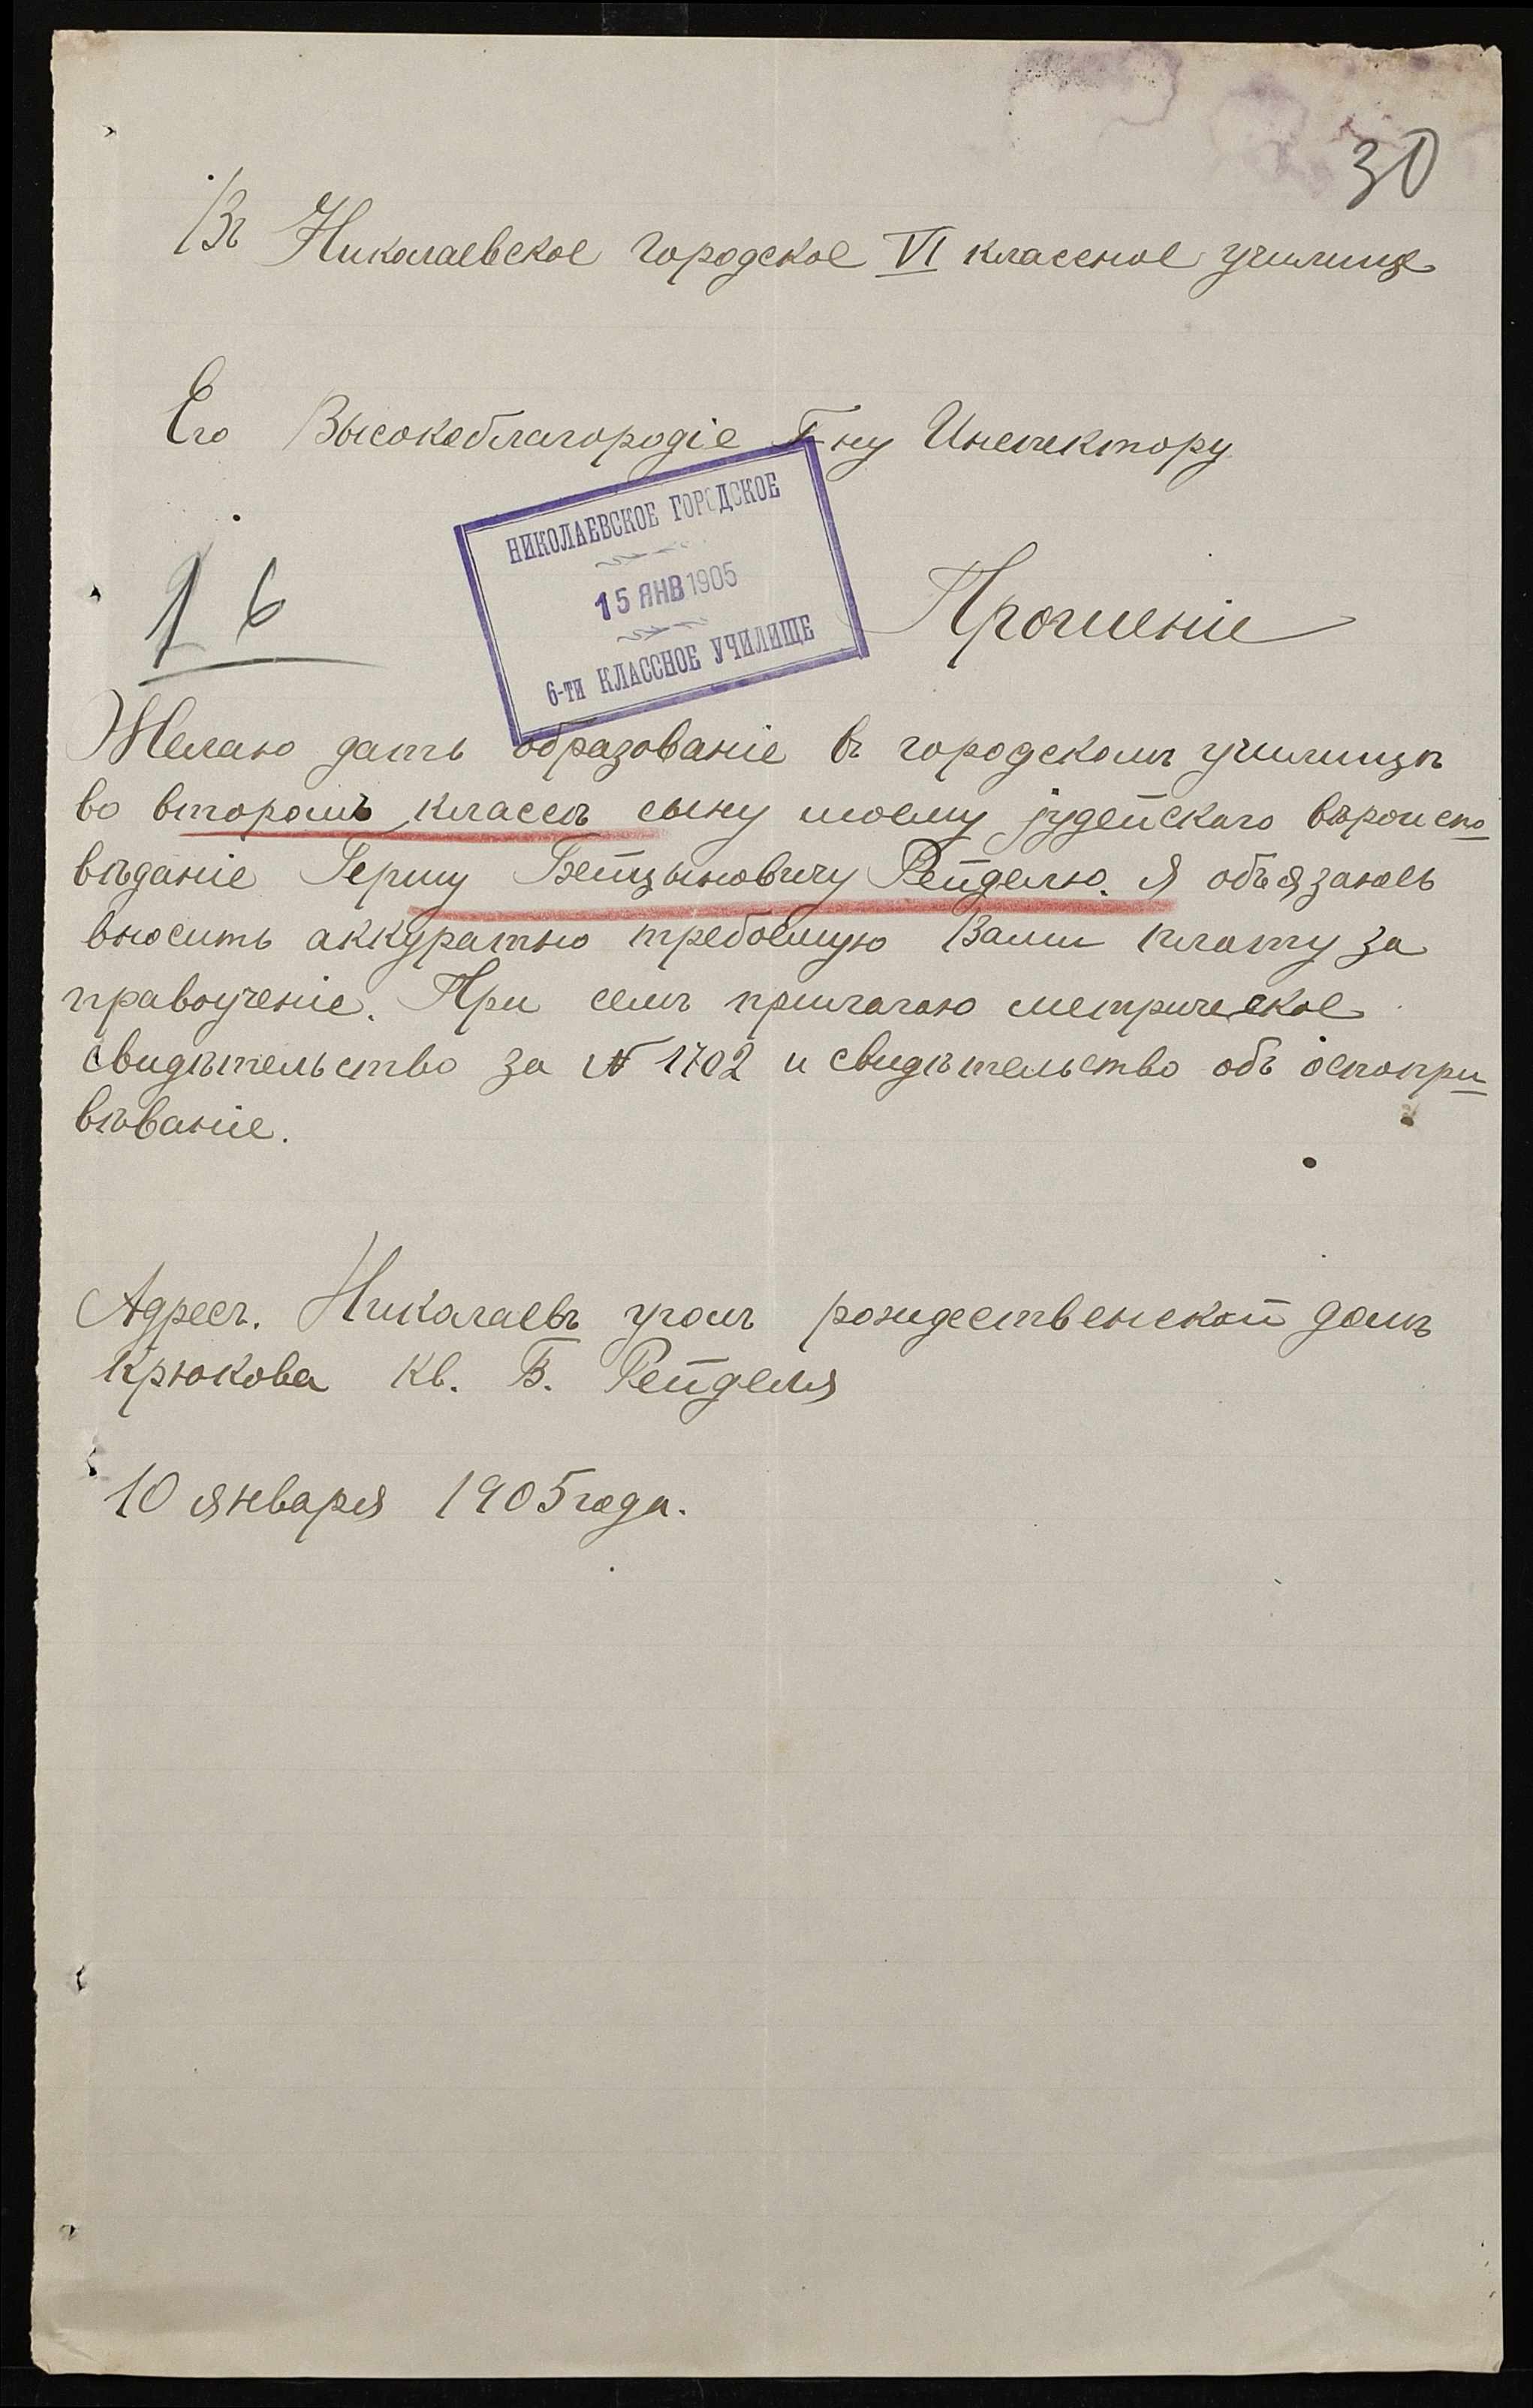 30
Въ Николаевское городское VI классное училище
Его Высокоблагородіе Г-ну Инспектору
НИКОЛАЕВСКОЕ ГОРОДСКОЕ
15 ЯНВ 1905
6-ТИ КЛАССНОЕ УЧИЛИЩЕ
16
Прошеніе
Желаю дать образованіе въ городскомъ училищѣ
во второмъ классѣ сыну моему іудейскаго вѣроиспо
вѣданіе Гершу Бейцыновичу Рейделю. Я объязаюсь
вносить аккуратно требоемую Вами плату за
правоученіе. При семъ прилагаю метрическое
свидѣтельство за № 1702 и свидѣтельство объ оспопри
вѣваніе.
Адресъ. Николаевъ уголъ рождественской домъ
Крюкова кв. Б. Рейделя
10 января 1905 года.